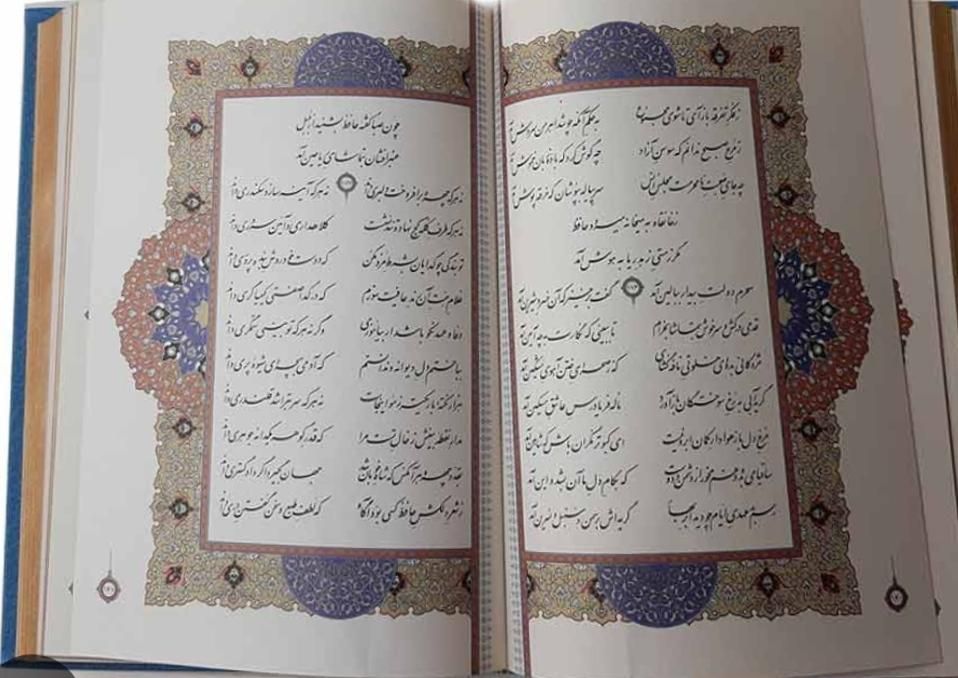 ز فکر تفرقه باز آی تا شوی مجموع به حکم آنکه چو شد اهرمن سروش آمد
ز مرغ صبح ندانم که سوسن آزاد چه گوش کرد که باده زبان خموش آمد
چه جای صحبت نامحرمست مجلس انس سر پیاله بپوشان که خرقه پوش آمد
ز خانقاه به میخانه میرود حافظ
مگر ز مستی زهد ریا به هوش آمد
سحرم دولت بیدار ببالین آمد گفت برخیز که آن خسرو شیرین آمد
قدحی درکش و سرخوش بتماشا بخرام تا ببینی که نگارت بچه آیین آمد
مژدگانی بده ای خلوتی نافه گشای که ز صحرای ختن آهوی مشکین آمد
گریه آبی برخ سوختگان بازآورد ناله فریادرس عاشق مسکین آمد
مرغ دل باز هوادار کمان ابروئیست ای کبوتر نگران باش که شاهین آمد
ساقیا می بده و غم مخور از دشمن و دوست که بکام دل ما آن بشد و این آمد
رسم بدعهدی ایام چو دید ابر بهار گریه‌اش بر سمن و سنبل و نسرین آمد
چون صبا گفته حافظ بشنید از بلبل
عنبرافشان بتماشای ریاحین آمد
نه هرکه چهره برافروخت دلبری داند نه هرکه آینه سازد سکندری داند
نه هرکه طرف کله کج نهاد و تند نشست کلاهداری و آیین سروری داند
تو بندگی چو گدایان بشرط مزد مکن که دوست خود روش بنده پروری داند
غلام همت آن رند عافیت سوزم که در گداصفتی کیمیاگری داند
وفا و عهد نکو باشد ار بیاموزی وگرنه هرکه تو بینی ستمگری داند
بباختم دل دیوانه و ندانستم که آدمی بچه‌ای شیوه پری داند
هزار نکته باریکتر ز مو اینجاست نه هرکه سر بتراشد قلندری داند
مدار نقطه بینش ز خال تست مرا که قدر گوهر یکدانه جوهری داند
بقد و چهره هرآنکس که شاه خوبان شد جهان بگیرد اگر دادگستری داند
ز شعر دلکش حافظ کسی بود آگاه که لطف طبع و سخن گفتن دری داند